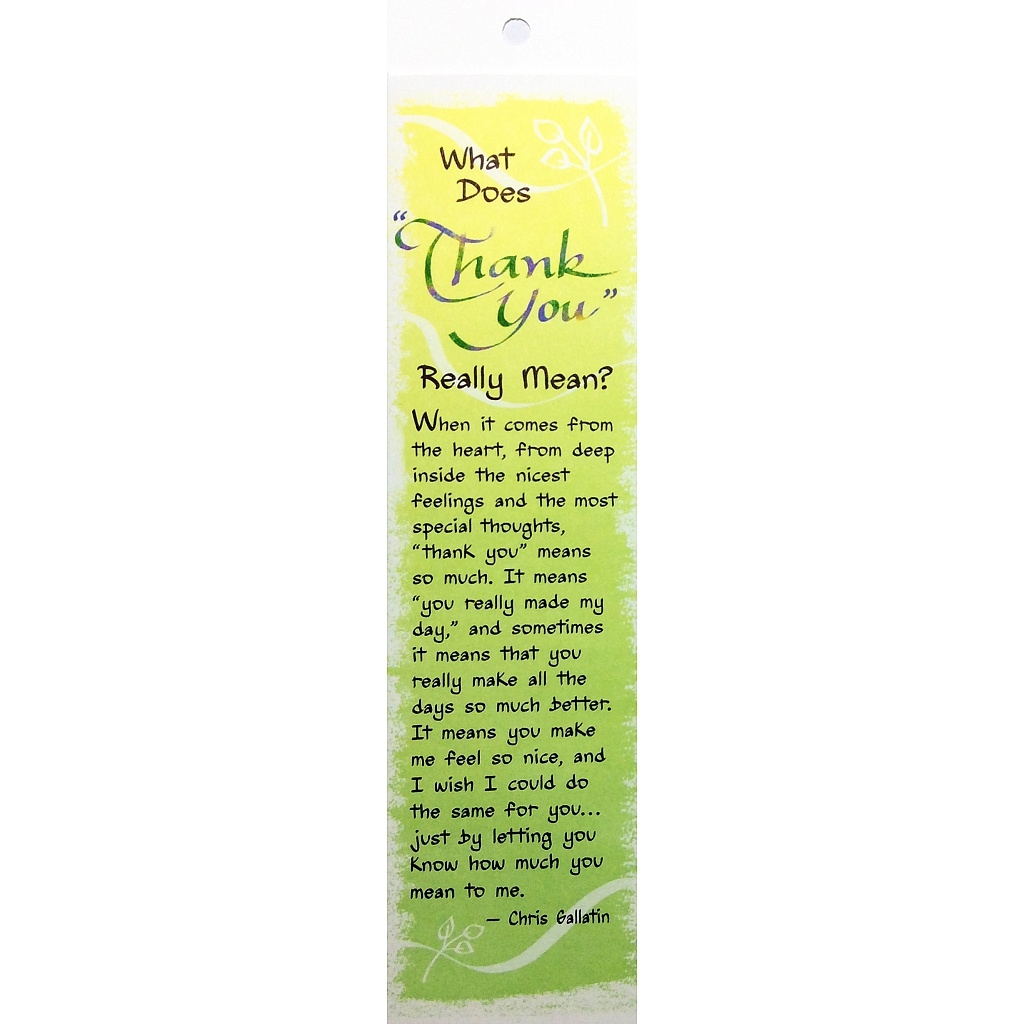 What
Does
“Thank
You”
Really Mean?
When it comes from
the heart, from deep
inside the nicest
feelings and the most
special thoughts,
“thank you” means
so much. It means
“you really made my
day,” and sometimes
it means that you
really make all the
days so much better.
It means you make
me feel so nice, and
I wish I could do
the same for you...
just by letting you
know how much you
mean to me.
— Chris Gallatin